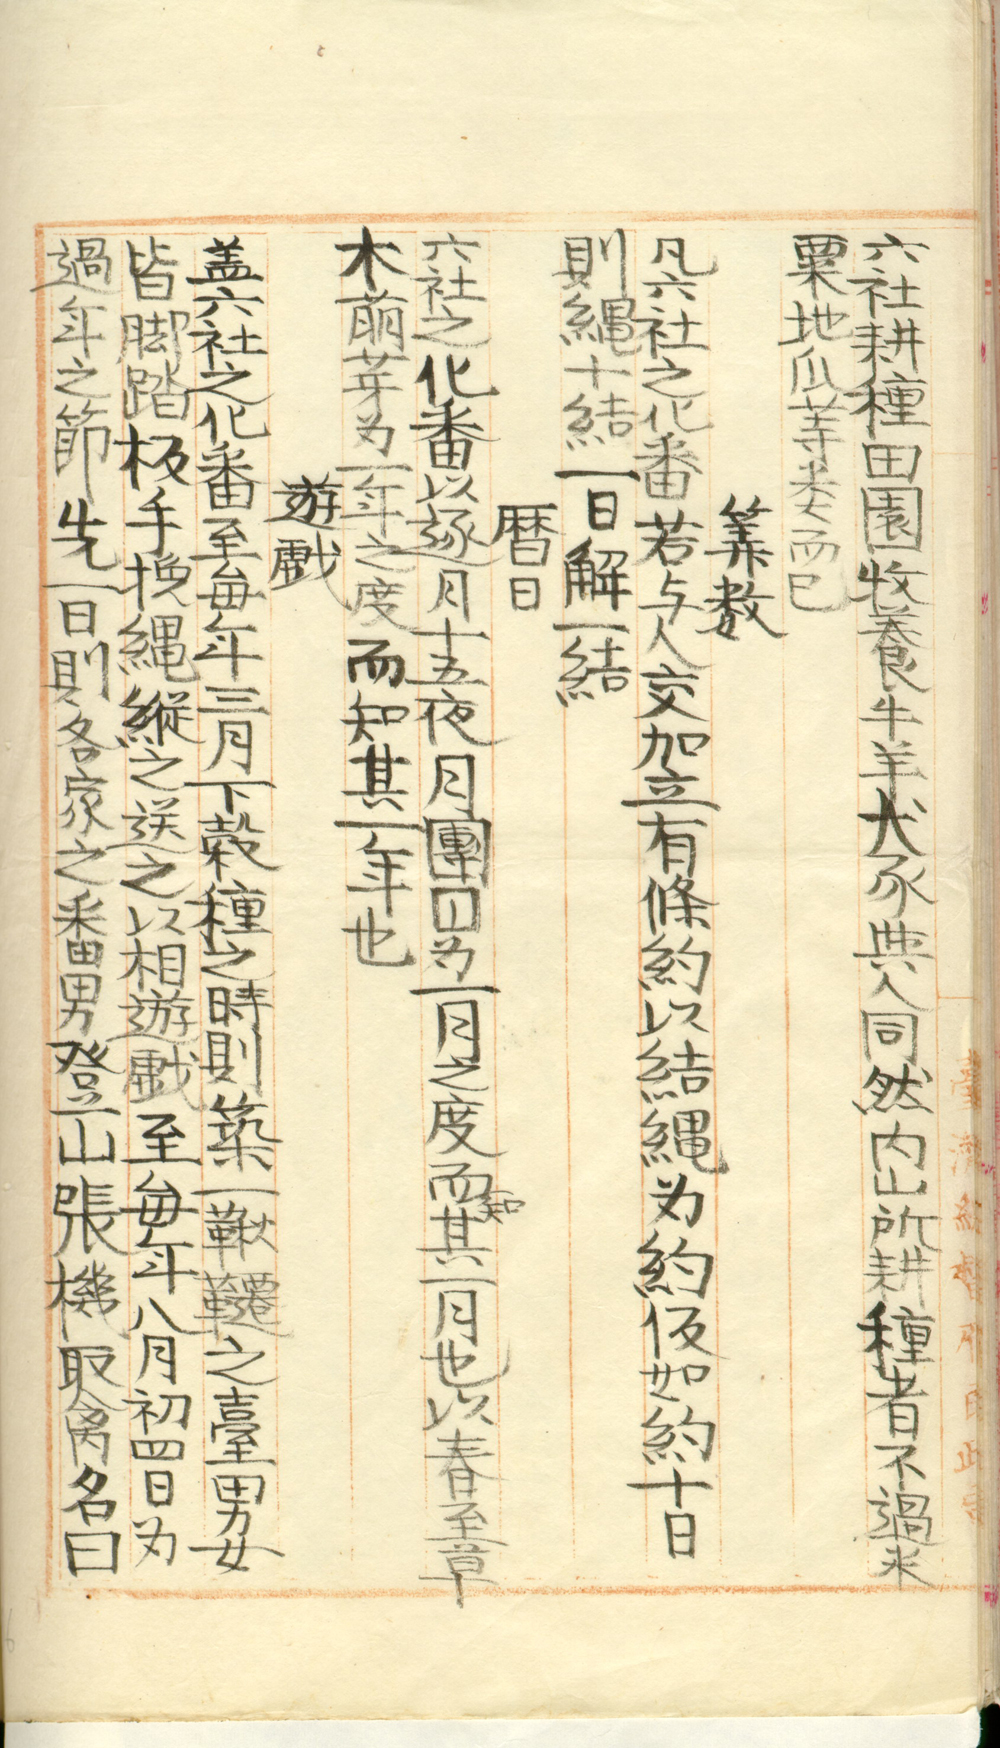 六社耕種田園牧養牛羊犬豕與人同然内山所耕種者不過米
粟地瓜䓁类而已
筭数
凡六社之化番若与人交加立有條約以結縄为約仮如約十日
則縄十結一日解一結
暦日
六社之化番以逐月十五夜月團圓为一月之度而知其一月也以春至草
木萠芽为一年之度而知其一年也
遊戯
盖六社之化番至毎年三月下穀種之時則築一鞦韆之臺男女
皆脚踏板手挽縄縦之送之以相遊戯至毎年八月初四日为
過年之節先一日則各家之番男登山張機取禽名曰